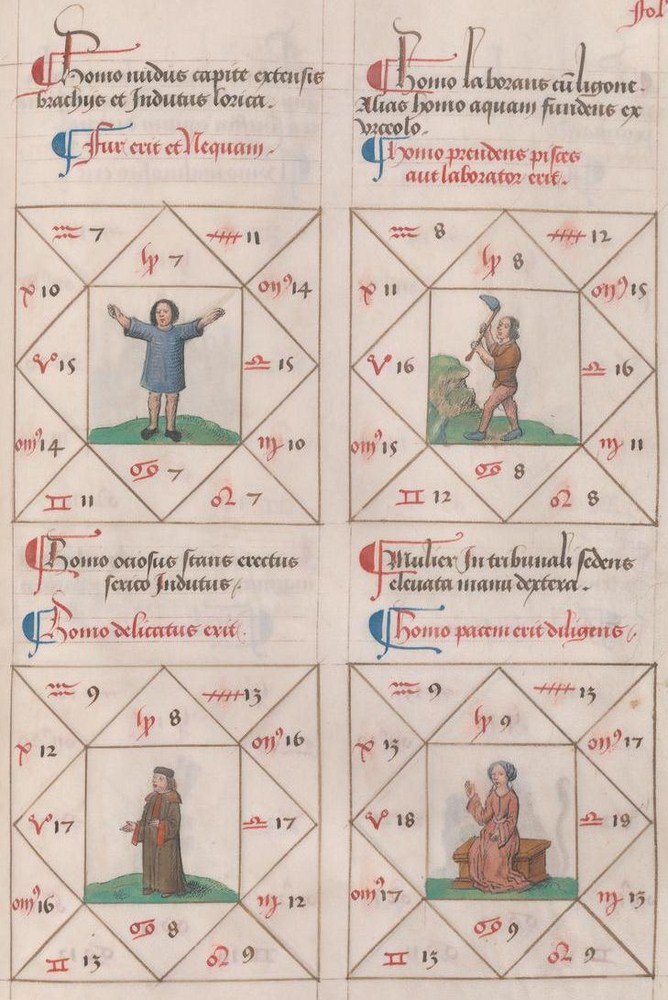 Homo nudus capite extensis
brachijs et Indutus lorica.
Fur erit et Nequam.
♒ 7 ♐ 11
♑ 7
♓ 10 ♏ 14
♈ 15 ♎ 15
♉ 14 ♍ 10
♋ 7
♊ 11 ♌ 7
Homo laborans cū ligone.
Alias homo aquam fundens ex
vrceolo.
Homo prendens pisces
aut laborator erit.
♒ 8 ♐ 12
♑ 8
♓ 11 ♏ 15
♈ 16 ♎ 16
♉ 15 ♍ 11
♋ 8
♊ 12 ♌ 8
Homo ociosus stans erectus
serico Indutus.
Homo delicatus erit.
♒ 9 ♐ 13
♑ 8
♓ 12 ♏ 16
♈ 17 ♎ 17
♉ 16 ♍ 12
♋ 8
♊ 13 ♌ 9
Mulier In tribunali sedens
eleuata manu dextera.
Homo pacem erit diligens.
♒ 9 ♐ 13
♑ 9
♓ 13 ♏ 17
♈ 18 ♎ 19
♉ 17 ♍ 13
♋ 9
♊ 13 ♌ 9